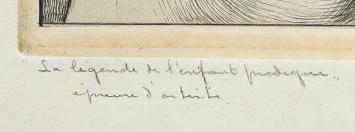 "La légende de l'enfant prodigue"
épreuve d'artiste.